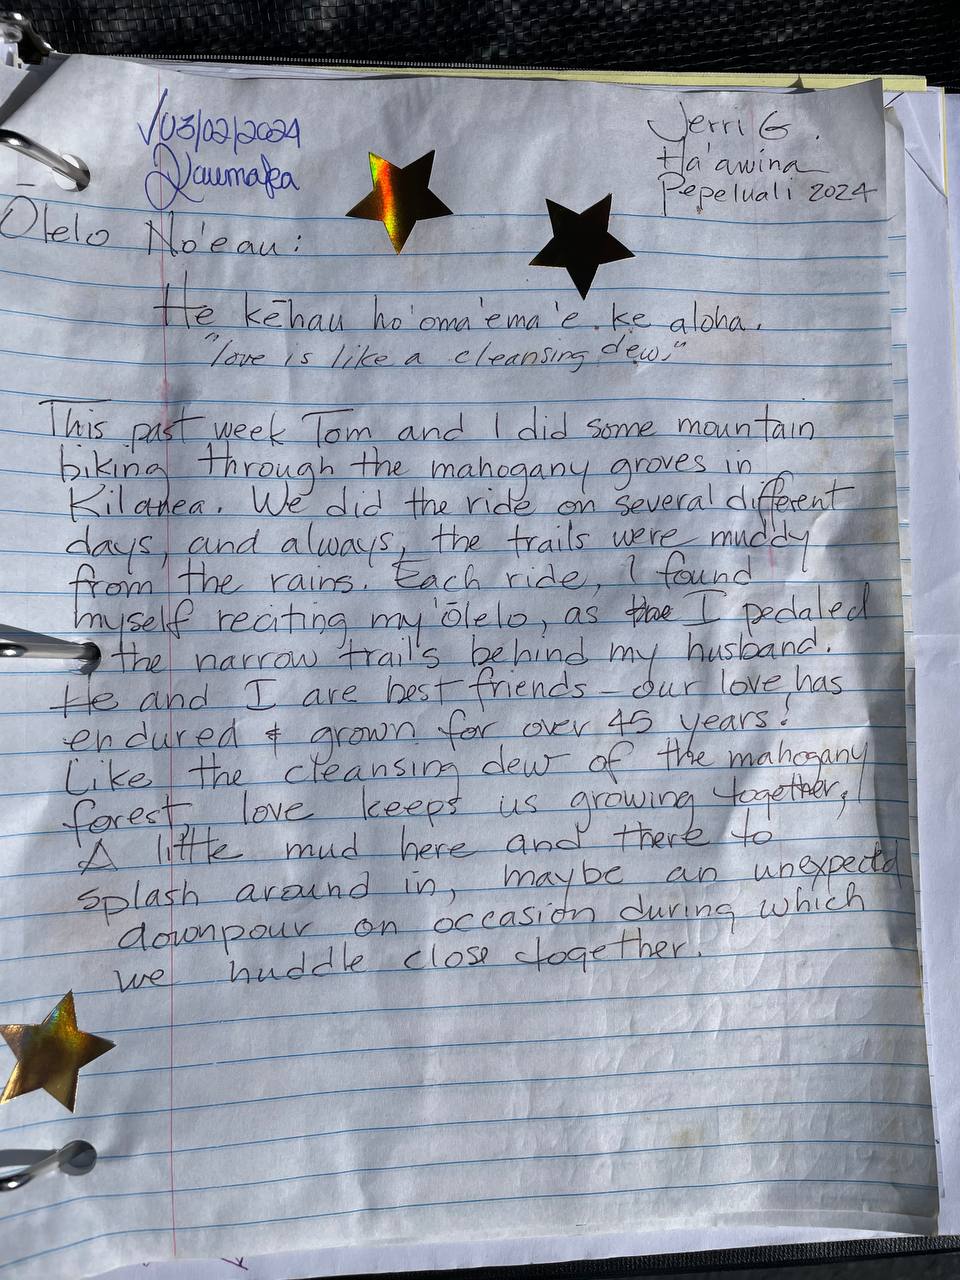 √ 03/02/2024
Kaumaka
Jerri G.
Ha'awina
Pepeluali 2024
Ōlelo No'eau:
He kēhau ho'oma'ema'e ke aloha.
"love is like a cleansing dew."
This past week Tom and I did some mountain
biking through the mahogany groves in
Kilauea. We did the ride on several different
days, and always, the trails were muddy
from the rains. Each ride, I found
myself reciting my 'ōlelo, as I pedaled
the narrow trails behind my husband.
He and I are best friends – our love has
endured & grown for over 45 years!
Like the cleansing dew of the mahogany
forest, love keeps us growing together,
A little mud here and there to
splash around in, maybe an unexpected
downpour on occasion during which
we huddle close together.